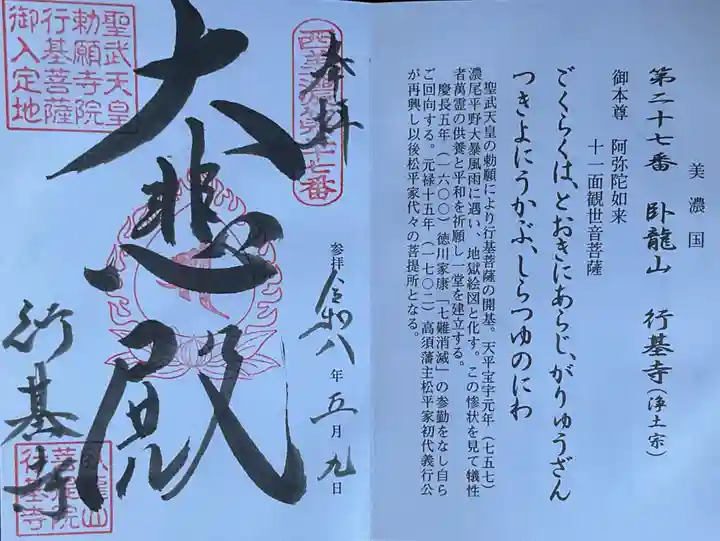 美濃国
第二十七番 卧龍山 行基寺(浄土宗)
御本尊 阿弥陀如来
十一面観世音菩薩
ごくらくは、とおきにあらじ、がりゅうざん
つきよにうかぶ、しらつゆのにわ
聖武天皇の勅願により行基菩薩の開基。天平宝字元年(七五七)
濃尾平野大暴風雨に遇い、地獄絵図と化す。この惨状を見て犠牲
者萬霊の供養と平和を祈願し一堂を建立する。
慶長五年(一六〇〇)徳川家康「七難消滅」の参勤をなし自ら
ご回向する。元禄十五年(一七〇二)高須藩主松平家初代義行公
が再興し以後松平家代々の菩提所となる。
奉拝
西美濃第廿七番
参拝 令和八年五月九日
大悲殿
行基寺
聖武天皇
勅願寺院
行基菩薩
御入定地
臥龍山
菩提院
行基寺